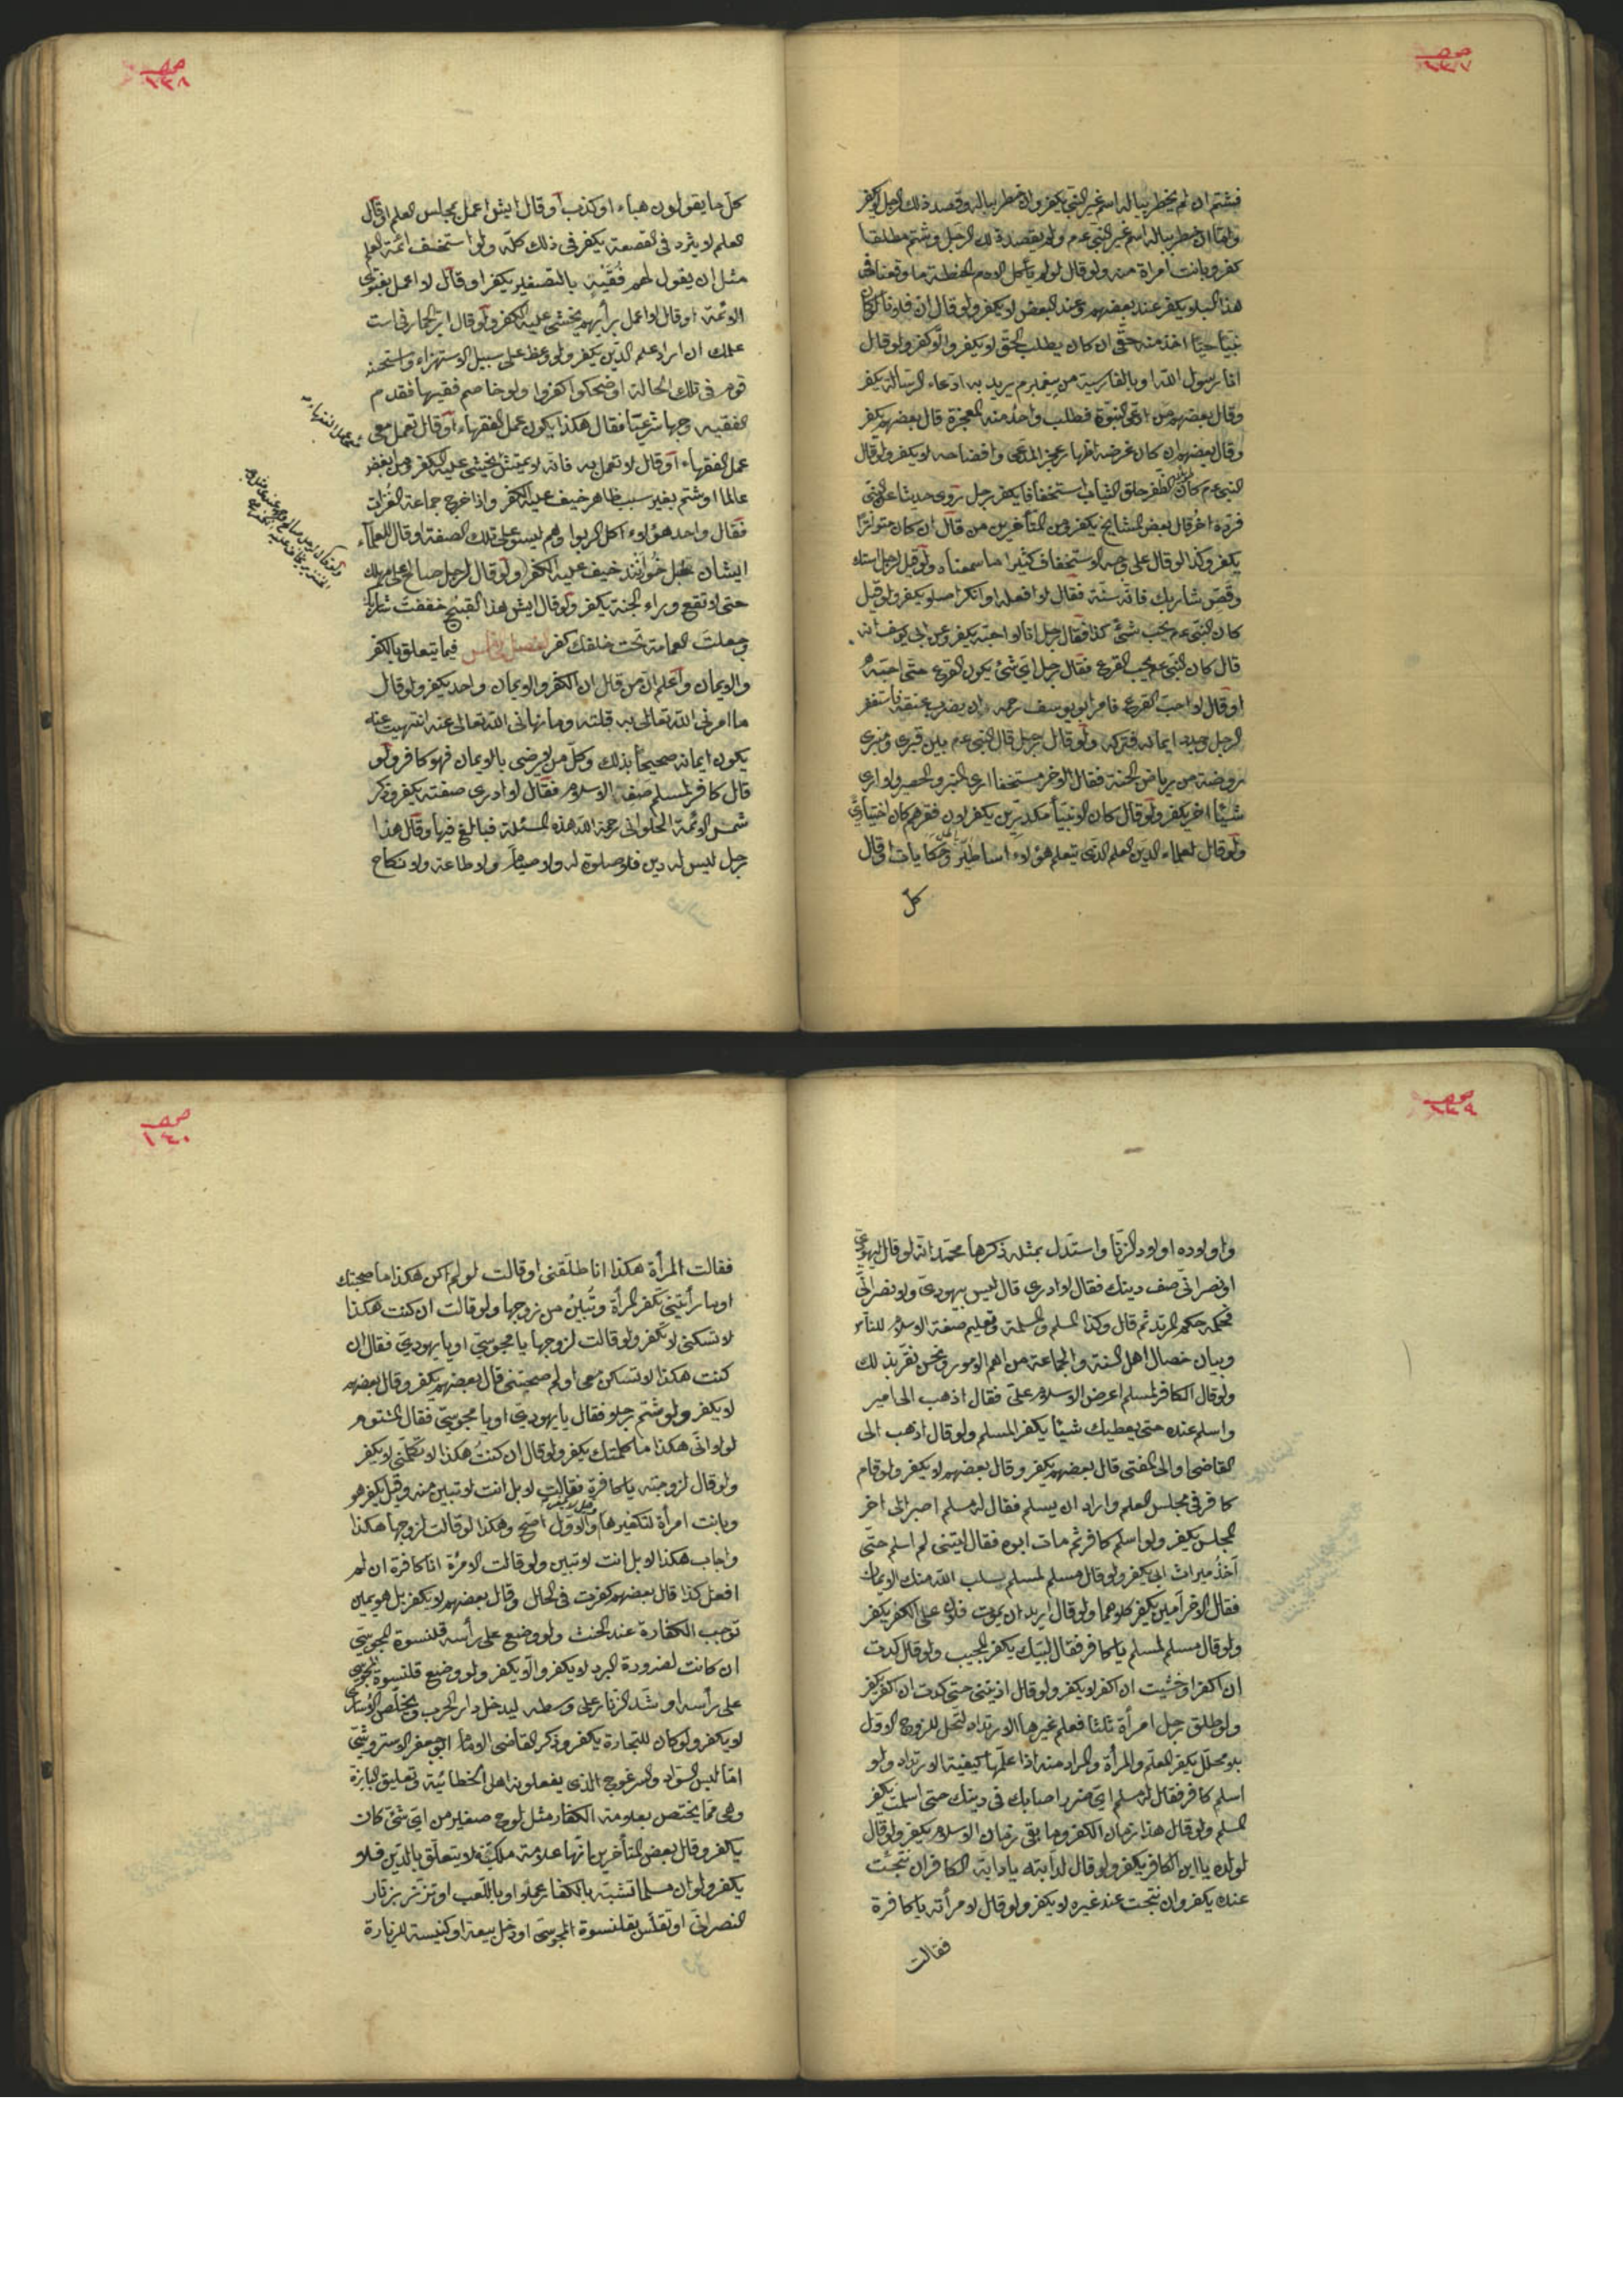 صحـ ١٣٧
فشتم ان لم يخطر بباله اسم غير النبي يكفر وان خطر بباله وقصد ذلك الرجل لا يكفر
وامّا ان خطر بباله اسم غير النبي عم ولم يقصد ذلك الرجل وشتم مطلقا
كفر وبانت امرأة منه ولو قال لو لم يأكل الادم الحنطة ما وقعنا في
هذا البلاء يكفر عند بعضهم وعند البعض لا يكفر ولو قال ان فلانا لو كان
نبيّا حيّا اخذ منه حقّي ان كان يطلب الحقّ لا يكفر والّا كفر ولو قال
انا رسول الله او بالفارسية من پيغمبرم يريد به ادعاء الرسالة يكفر
وقال بعضهم من ادعى النبوّة فطلب واحد منه المعجزة قال بعضهم يكفر
وقال بعضهم ان كان غرضه اظهار عجز المدّعى وافتضاحه لا يكفر ولو قال
النبي عم كان طويل الظفر خلق الثياب استخفافا يكفر رجل روى حديثا عن النبي
فردّه اخر قال بعض المشايخ يكفر ومن المتأخرين من قال ان كان متواترًا
يكفر وكذا لو قال على وجه الاستخفاف كثيرا ما سمعناه ولو قيل لرجل استك
وقصّ شاربك فانّه سنّة فقال لا افعله او انكر اصلا يكفر ولو قيل
كان النبي عم يحب شئ كذا فقال رجل انا لا احبّه يكفر وعن ابي يوسف انه
قال كان النبي عم يحب القرع فقال رجل ايّ شئ يكون القرع حتّى احبّه
او قال لا احبّ القرع فامر ابو يوسف رحمه ان يضرب عنقه فاستغفر
الرجل وجدد ايمانه فتركه ولو قال رجل قال النبي عم بين قبري ومنبري
روضة من رياض الجنة فقال الاخر مستخفا ارى المنبر والحصير ولا ارى
شيئًا اخر يكفر ولو قال كان الانبياء مكدّرين يكفر لان فقرهم كان اختياريّ
ولو قال لعلماء الدين العلم الذي يتعلم هؤلاء اساطير وحكايات او قال
كل
صحـ ١٣٨
كلّ ما يقولون هباء او كذب او قال ايش اعمل بمجلس العلم او قال
العلم لا يثرد في القصعة يكفر في ذلك كلّه ولو استخف ائمّة العلم
مثل ان يقول لهم فُقَيّه بالتصغير يكفر او قال لا اعمل بفتوى
الائمّة او قال لا اعمل برأيهم يخشى عليه الكفر ولو قال
علمك ان اراد علم الدّين يكفر ولو وعظ على سبيل الاستهزاء واستحنه
قوم في تلك الحالة او ضحكوا كفروا ولو خاصم فقيها فقدم
الفقيه وجها شرعيّا فقال هكذا يكون عمل الفقهاء او قال تعمل معي
عمل الفقهاء او قال لا تعمل به فانّه لا يمشى يخشى عليه الكفر ومن ابغض
عالما او شتم بغير سبب ظاهر خيف عليه الكفر واذا خرج جماعة الغزات
فقال واحد هؤلاء اكل الربوا وهم ليسوا على تلك الصفة او قال للعلماء
ايشان طبل خوانند خيف عليه الكفر ولو قال لرجل صالح على مهلك
حتى لا تقع وراء الجنة يكفر ولو قال ايش هذا القبيح خففت شاربك
وجعلت العمامة تحت حلقك كفر الفصل الخامس فيما يتعلق بالكفر
والايمان واعلم انّ من قال ان الكفر والايمان واحد يكفر ولو قال
ما امرني الله تعالى به قبلته وما نهاني الله تعالى عنه انتهيت عنه
يكون ايمانه صحيحًا بذلك وكلّ من لا يرضى بالايمان فهو كافر ولو
قال كافر لمسلم صف الاسلام فقال لا ادرى صفته يكفر وذكر
شمس الائمة الحلواني رحمة الله هذه المسئلة فبالغ فيها وقال هذا
رجل ليس له دين فلا صلوة له ولا صيام ولا طاعة ولا نكاح
صحـ ١٣٩
واولاده اولاد الزنا واستدل بمثله ذكرها محمد انّه لو قال ليهوديّ
او نصرانيّ صف دينك فقال لا ادرى قال ليس بيهوديّ ولا نصرانيّ
فحكمه حكم المرتد ثم قال وكذا المسلم والمسلمة وتعليم صفة الاسلام للناس
وبيان خصال اهل السنة والجماعة من اهم الامور ونحن نقرّ بذلك
ولو قال الكافر لمسلم اعرض الاسلام علىّ فقال اذهب الى امير
واسلم عنده حتى يعطيك شيئا يكفر المسلم ولو قال اذهب الى
القاضى او الى المفتى قال بعضهم يكفر وقال بعضهم لا يكفر ولو قام
كافر في مجلس العلم واراد ان يسلم فقال له مسلم اصبر الى اخر
المجلس يكفر ولو اسلم كافر ثم مات ابوه فقال ليتنى لم اسلم حتّى
آخذ ميراث ابى يكفر ولو قال مسلم لمسلم يسلب الله منك الايمان
فقال الاخر آمين يكفر كلاهما ولو قال اريد ان يموت فلان على الكفر يكفر
ولو قال مسلم لمسلم يا كافر فقال لبّيك يكفر المجيب ولو قال كدت
ان اكفر او خشيت ان اكفر لا يكفر ولو قال اذيتنى حتى كدت ان اكفر يكفر
ولو طلق رجل امرأة ثلثا فعلم غيرها الارتداد لتحل للزوج الاوّل
بلا محلّل يكفر المعلّم والمرأة والمراد منه اذا علّمها كيفية الارتداد ولو
اسلم كافر فقال له مسلم ايّ ضرر اصابك في دينك حتى اسلمت يكفر
المسلم ولو قال هذا زمان الكفر وما بقى زمان الاسلام يكفر ولو قال
لولده يا ابن الكافر يكفر ولو قال لدابته يا دابّة الكافر ان نتجت
عنده يكفر وان نتجت عند غيره لا يكفر ولو قال لامرأته يا كافرة
فقالت
صحـ ١٤٠
فقالت المرأة هكذا انا طلّقنى او قالت لو لم اكن هكذا ما صحبتك
او ما رأيتنى تكفر المرأة وتبين من زوجها ولو قالت ان كنت هكذا
لا تسكنى لا تكفر ولو قالت لزوجها يا مجوسىّ او يا يهودىّ فقال ان
كنت هكذا لا تسكن معى او لم صحبتنى قال بعضهم يكفر وقال بعضهم
لا يكفر ولو شتم رجلا فقال يا يهودىّ او يا مجوسىّ فقال المشتوم
لولا انّى هكذا ما كلمتك يكفر ولو قال ان كنتُ هكذا لا تكلّمنى لا يكفر
ولو قال لزوجته يا كافرة فقالت لا بل انت لا تبين منه وقيل يكفر هو
وبانت امرأة لتكفيرها والاوّل اصحّ وهكذا لو قالت لزوجها هكذا
واجاب هكذا لا بل انت لا تبين ولو قالت الامرأة انا كافرة ان لم
افعل كذا قال بعضهم كفرت في الحال وقال بعضهم لا يكفر بل هو يمين
توجب الكفارة عند الحنث ولو وضع على رأسه قلنسوة المجوسىّ
ان كانت لضرورة البرد لا يكفر والّا يكفر ولو وضع قلنسوة المجوسى
على رأسه او شدّ الزنار على وسطه ليدخل دار الحرب ويخلّص الاسارى
لا يكفر ولو كان للتجارة يكفر وذكر القاضى الامام ابو جعفر الاستروشنى
امّا لبس السّواد والسرغوج الذى يفعلونه اهل الخطائيّة وتعليق الپايزة
وهى ممّا يختصّ بعلامة الكفار مثل لوح صغير من ايّ شئ كان
يكفر وقال بعض المتأخرين انّها علامة ملكيّة لا يتعلّق بالدّين فلا
يكفر ولو ان مسلما تشبّه بالكفار عملا او باللّعب او تزنّر بزنّار
النصرانى او تقلّس بقلنسوة المجوسىّ او دخل بيعة او كنيسة للزيارة